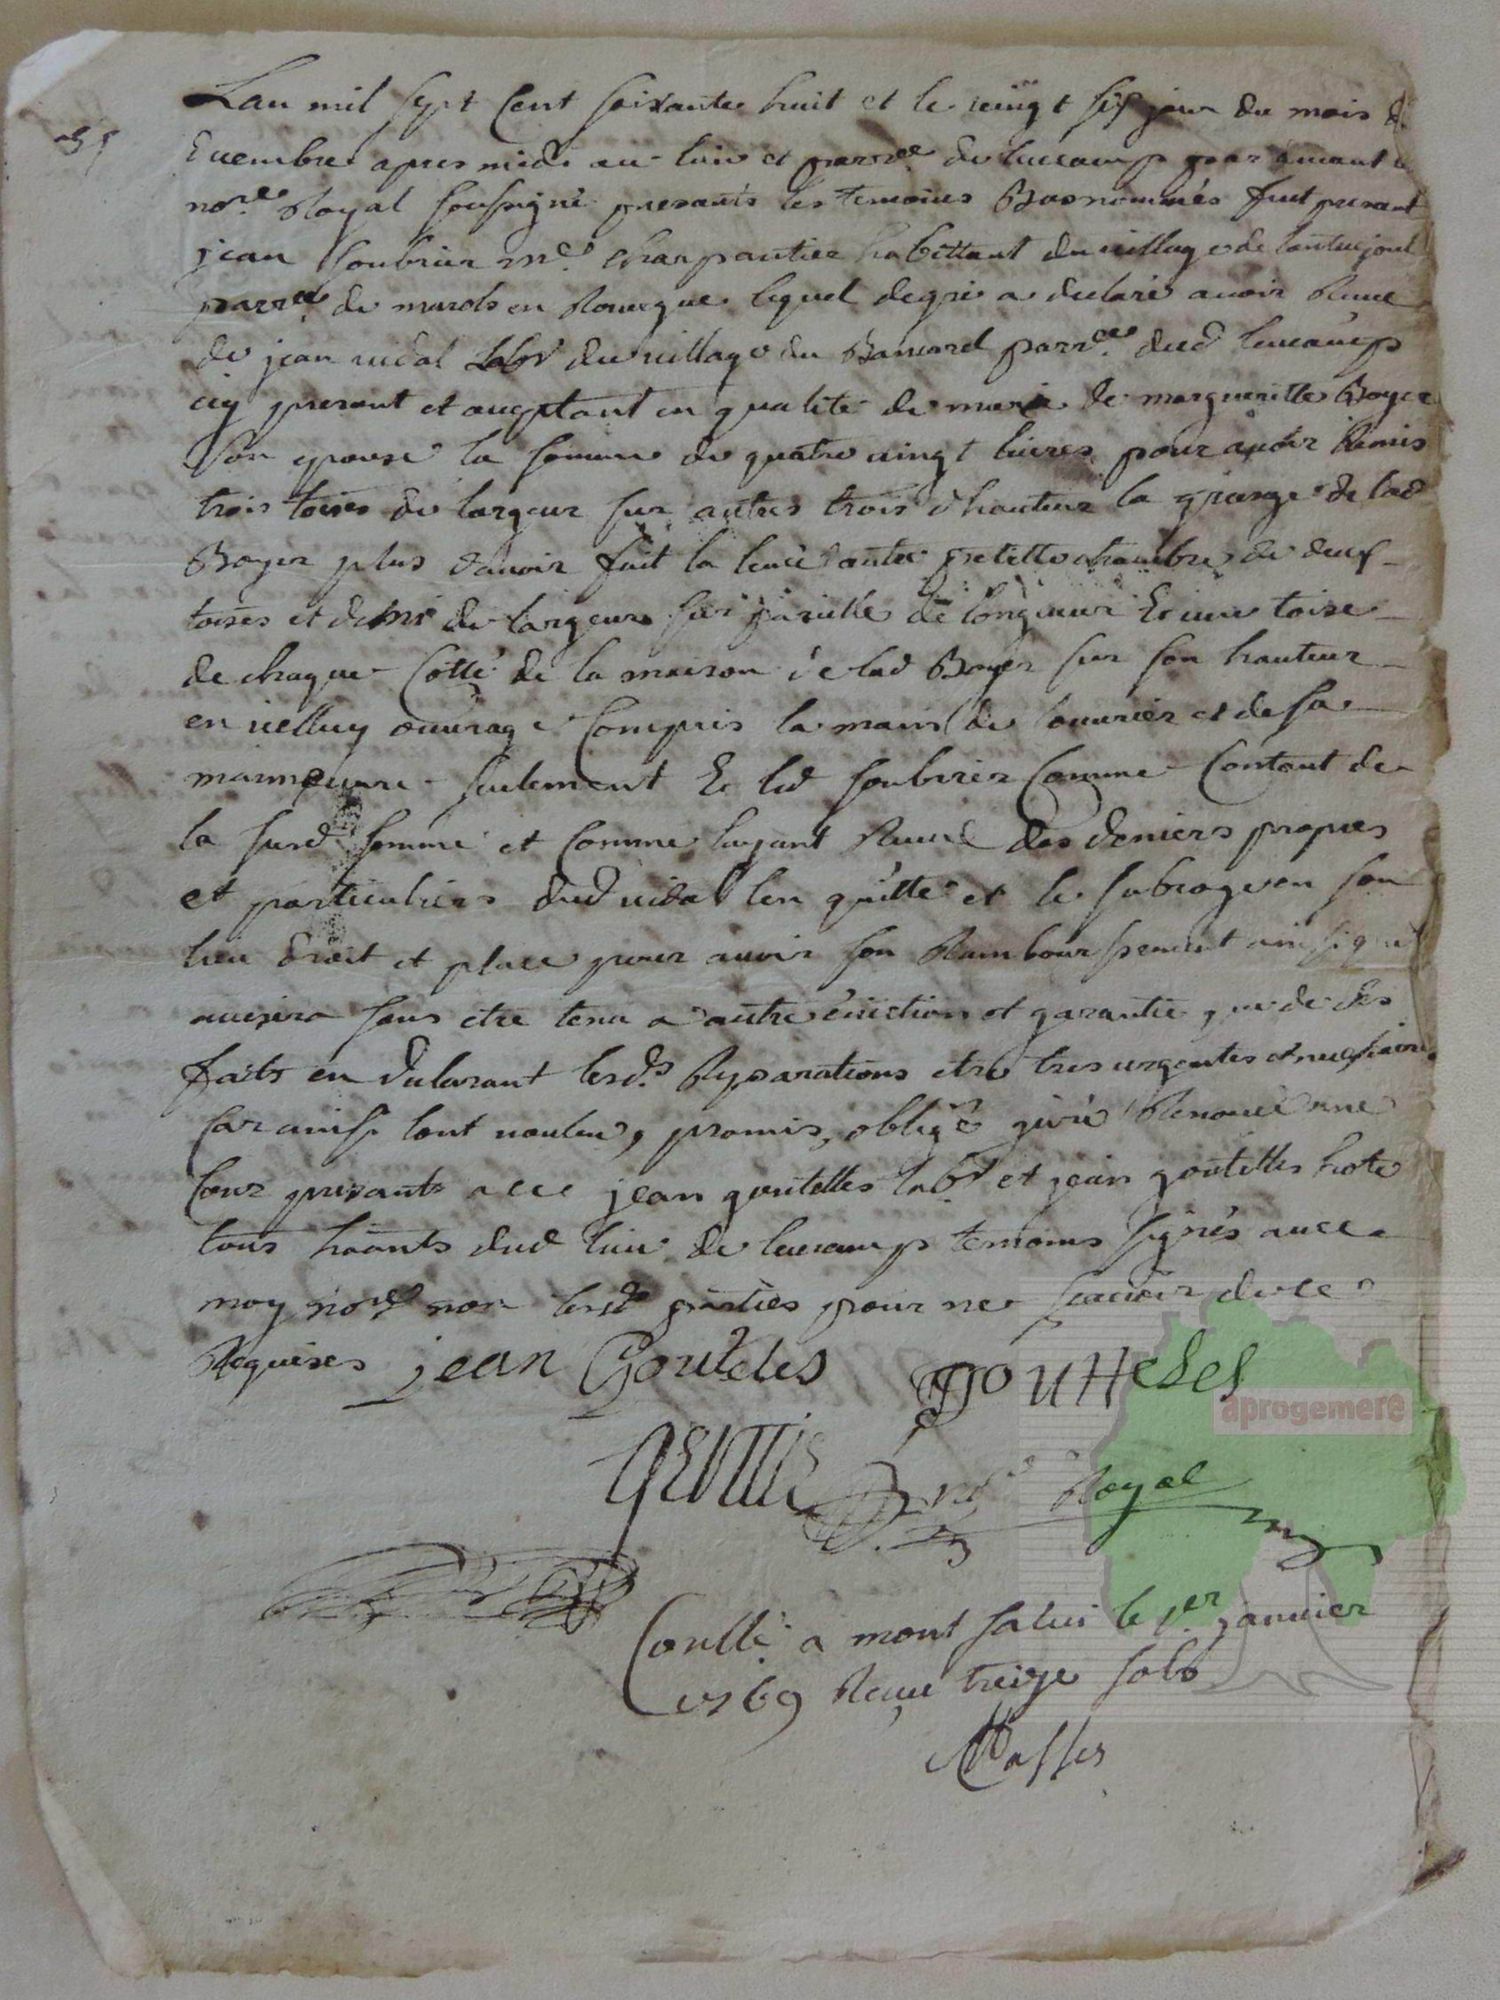 Lan mil sept Cent soixante huit et le vingt six jour du mois d
Evembre apres midi au lieu et parrce de leucamp par devant
nore Royal soussigné presants les temoins Basnommés fut presant
jean soubrier me charpantier habittant du village de
parrce de murols en Rouergue lequel de gré a declaré avoir Receu
de jean vidal labr du village du parrce dud leucamp
icy present et aceptant en qualité de mari de margueritte Boyer
son epouse la somme de quatre vingt livres pour avoir Remis
trois toises de largeur sur autres trois d'hauteur la grange de lad
Boyer plus davoir fait la petitte chambre de deux
toises et demi de largeur sur de longueur Et une toise
de chaque Cotté de la maison de lad Boyer sur son hauteur
en icelluy ouvrage Compris la main de louvrier et de sa
manneuvre seulement Et led soubrier Comme Contant de
la susd somme et Comme layant Receue des deniers propres
et particuliers dud vidal len quitte et le subroge en son
lieu Droit et place pour avoir son Rambourssement ainsi quil
avisera sans etre tenu a autre eviction et garantie que de ses
faits en declarant lesds Reparations etre tres urgentes et necessaires
Car ainsi lont voulu, promis, obligé juré Renoncé
Cour presants a ce jean goutelles labr et jean goutelles hote
tous haants dud lieu de leucamp temoins signés avec
moy nore non lesds parties pour ne scavoir de ce
Requises jean Gouteles gouttelel
nre Royal
Conllé a mont salui le 1er janvier
1769 Reçeu treize sols